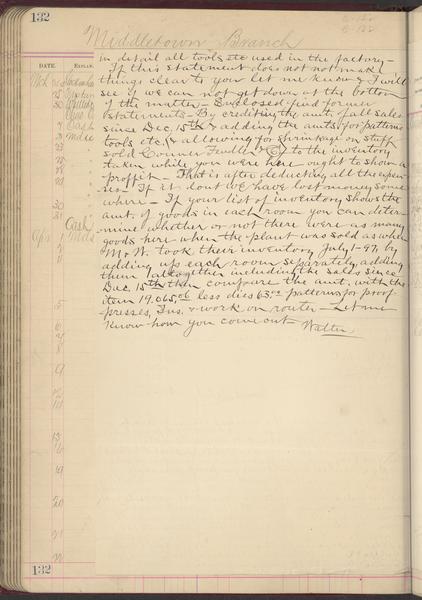 132
Middletown Branch
DATE. EXPLAN
in detail all tools etc used in the factory—
If this statement does not not make
things clear to you let me know & I will
see if we can not get down at the bottom
of the matter— Enclosed find former
statements— By crediting the amt. of all sales
since Dec, 15th & adding the amts, for patterns
tools etc, & allowing for shrinkage on stuff
sold Conner Fendler & Co to the inventory
taken while you were here ought to show a
proffit— That is after deducting all the expen-
ses— If it dont we have lost money some
where— If your list of inventory shows the
amt. of goods in each room you can deter-
mine whether or not there were as many
goods here when the plant was sold as when
Mr W. took their inventory July 1-97, by
adding up each room separately, adding
them altogether including the sales since
Dec, 15th then compare the amt, with the
item 19,065,06 less dies 63.00 patterns for proof
presses, Ins. & work on router— Let me
know how you come out— Walter
Cash
5
6
7
8
9
13
20
21
132